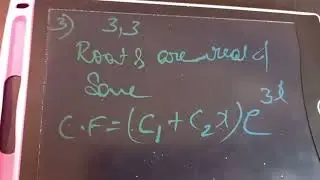 3) 3,3
Roots are real &
Same
C.F = (C₁ + C₂x)e³ˣ